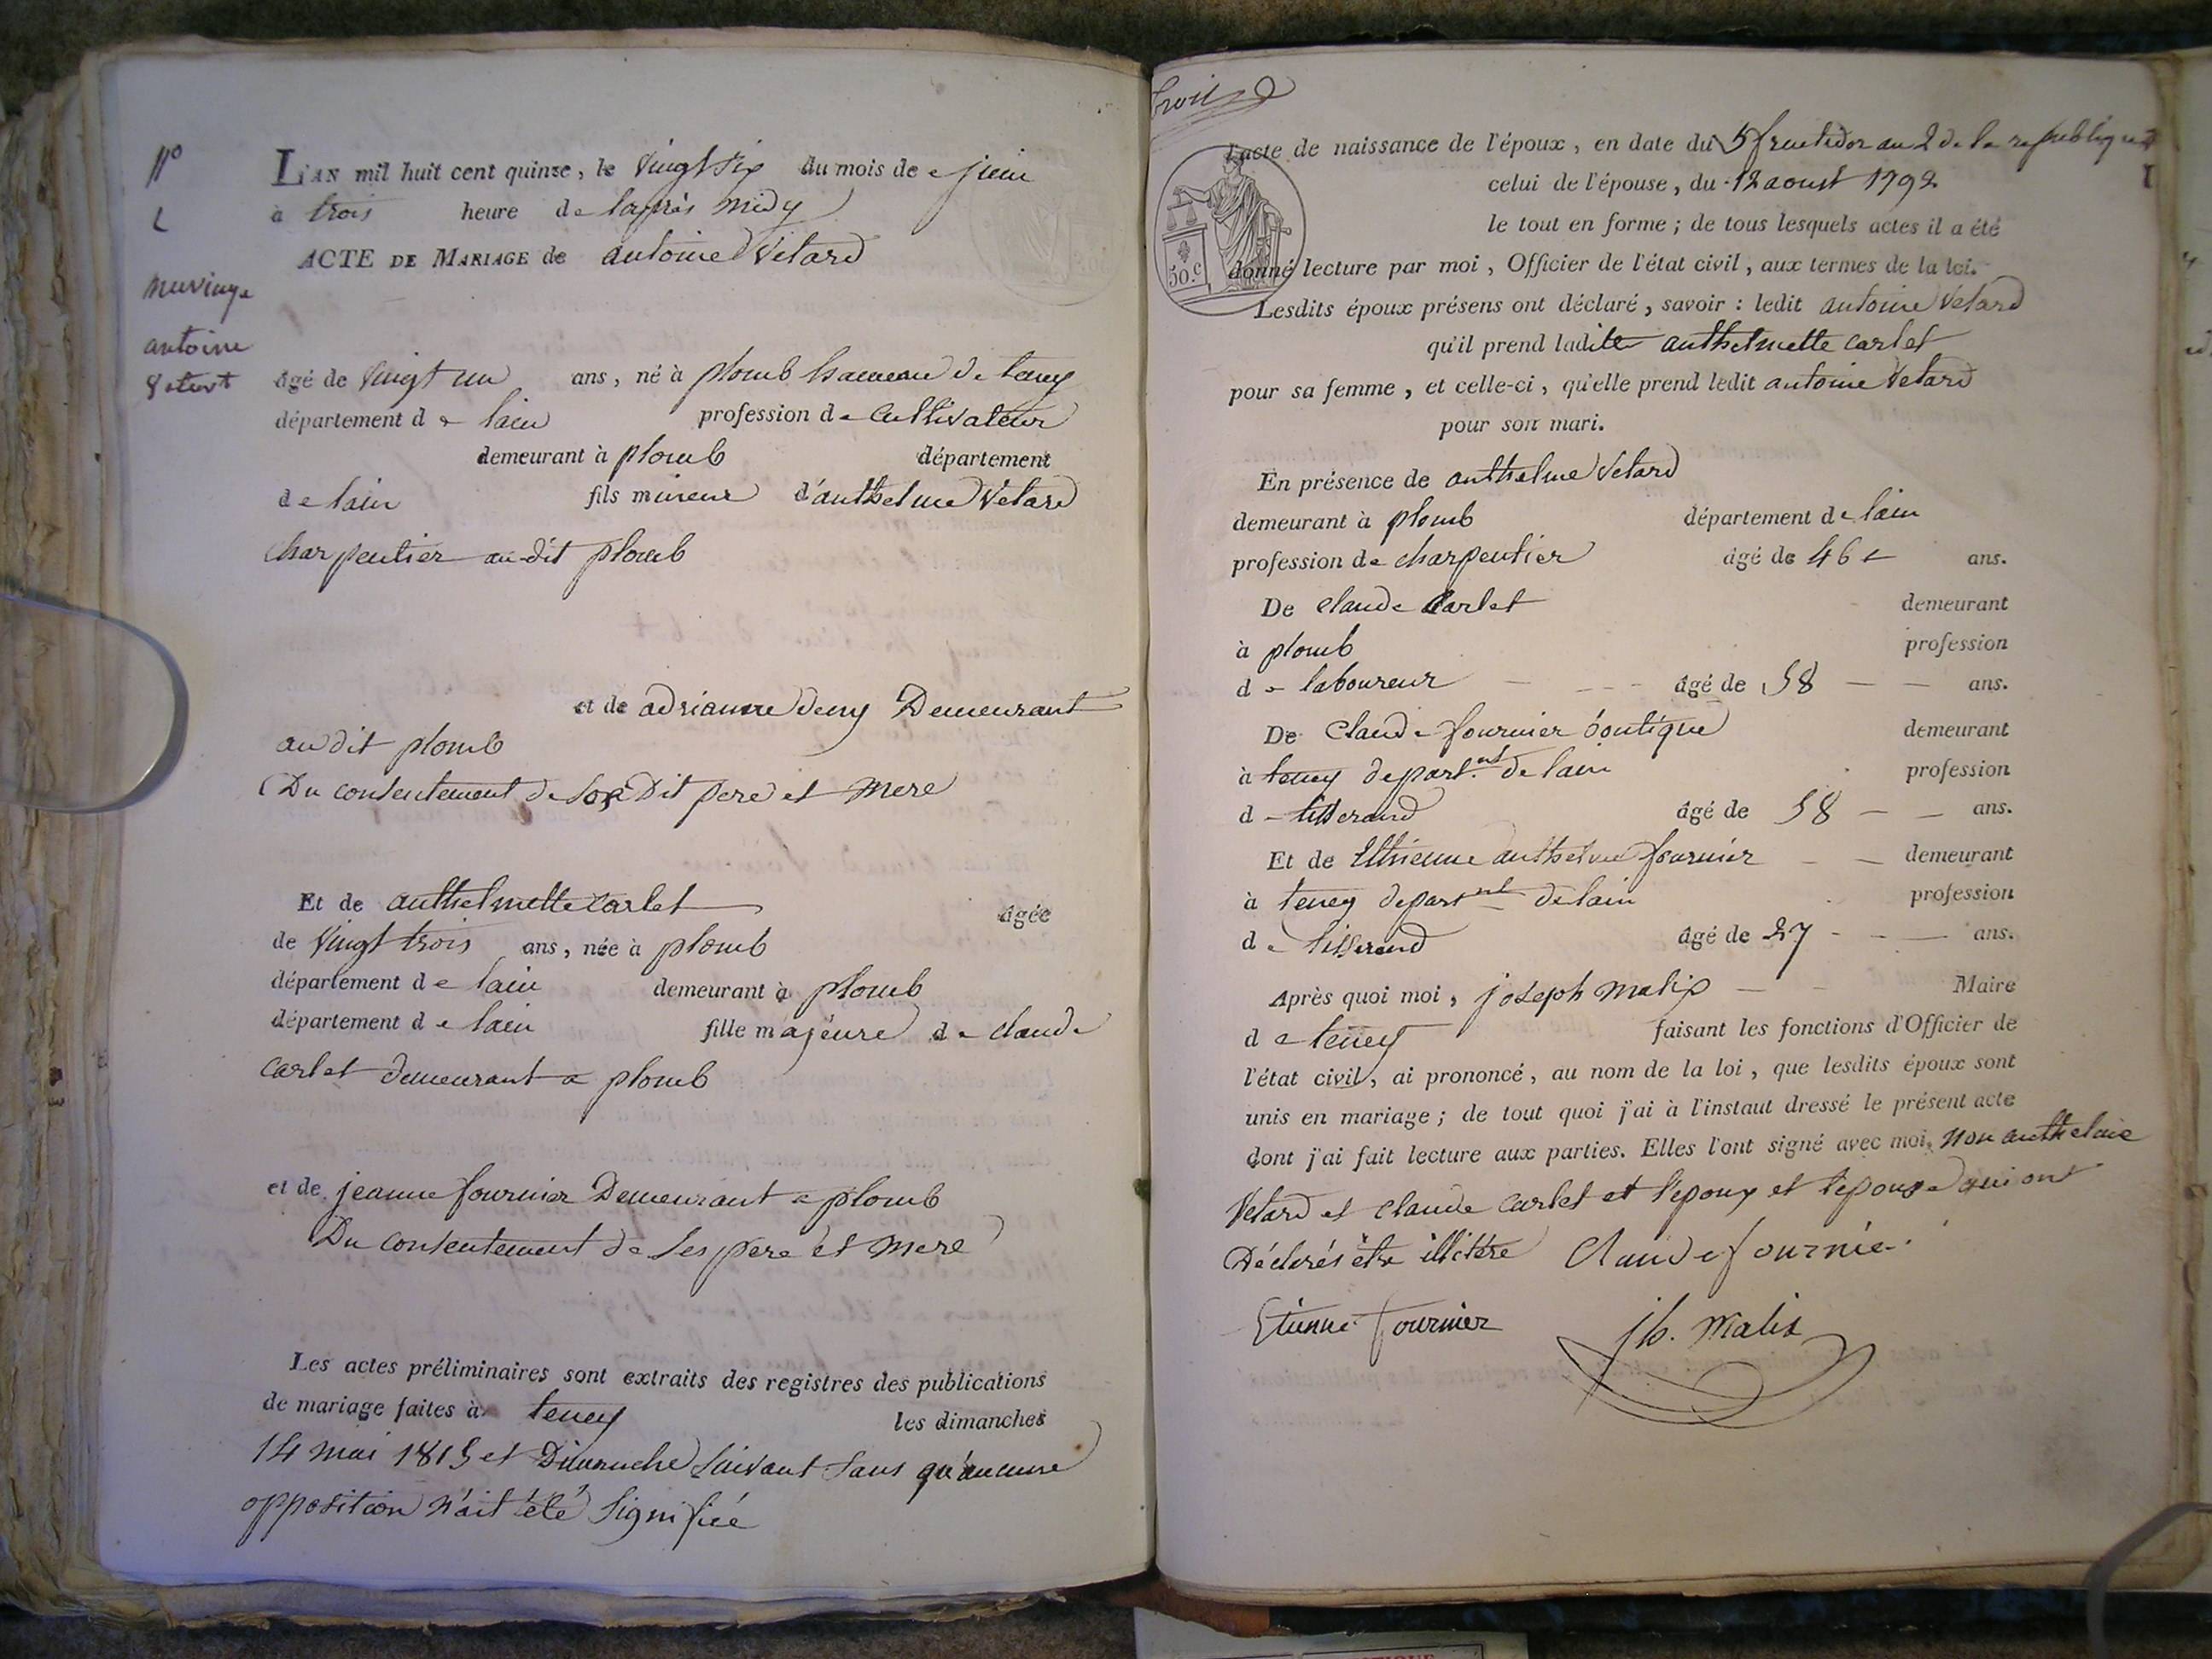 N°
L'AN mil huit cent quinze, le vingt six du mois de juin
à trois heure de laprès midy
ACTE DE MARIAGE de antoine Vetard
mariage
antoine
Vetard
âgé de vingt un ans, né à plomb hameau de teney
département de lain profession de Cultivateur
demeurant à plomb département
de lain fils mineur d'anthelme Vetard
charpentier au dit plomb
et de adrianne deny Demeurant
au dit plomb
Du consentement de Dit pere et mere
Et de anthelmette carlet âgée
de vingt trois ans, née à plomb
département de lain demeurant à plomb
département de lain fille majeure de claude
carlet demeurant a plomb
et de jeanne fournier Demeurant a plomb
Du consentement de ses pere et mere
Les actes préliminaires sont extraits des registres des publications
de mariage faites à teney les dimanches
14 mai 1815 et Dimanche suivant sans qu'aucune
opposition n'ait été signifiée
trois
L'acte de naissance de l'époux, en date du 5 fructidor an 2 de la republique
celui de l'épouse, du 12 aoust 1792
le tout en forme ; de tous lesquels actes il a été
donné lecture par moi, Officier de l'état civil, aux termes de la loi.
50.c
Lesdits époux présens ont déclaré, savoir : ledit antoine Vetard
qu'il prend ladite anthelmette carlet
pour sa femme, et celle-ci, qu'elle prend ledit antoine Vetard
pour son mari.
En présence de anthelme Vetard
demeurant à plomb département de lain
profession de charpentier âgé de 46 ans.
De claude Carlet demeurant
à plomb profession
de laboureur âgé de 58 ans.
De Claude fournier boutique demeurant
à teney depart.nt de lain profession
de tisserand âgé de 58 ans.
Et de Ethienne anthelme fournier demeurant
à teney depart nt de lain profession
de tisserand âgé de 27 ans.
Après quoi moi, joseph malix Maire
de teney faisant les fonctions d'Officier de
l'état civil, ai prononcé, au nom de la loi, que lesdits époux sont
unis en mariage ; de tout quoi j'ai à l'instaut dressé le présent acte
dont j'ai fait lecture aux parties. Elles l'ont signé avec moi, non anthelme
Vetard et claude carlet et l'epoux et l'epouse qui ont
Déclarés être illitére Claude fournie
Etienne fournier jh. Malix